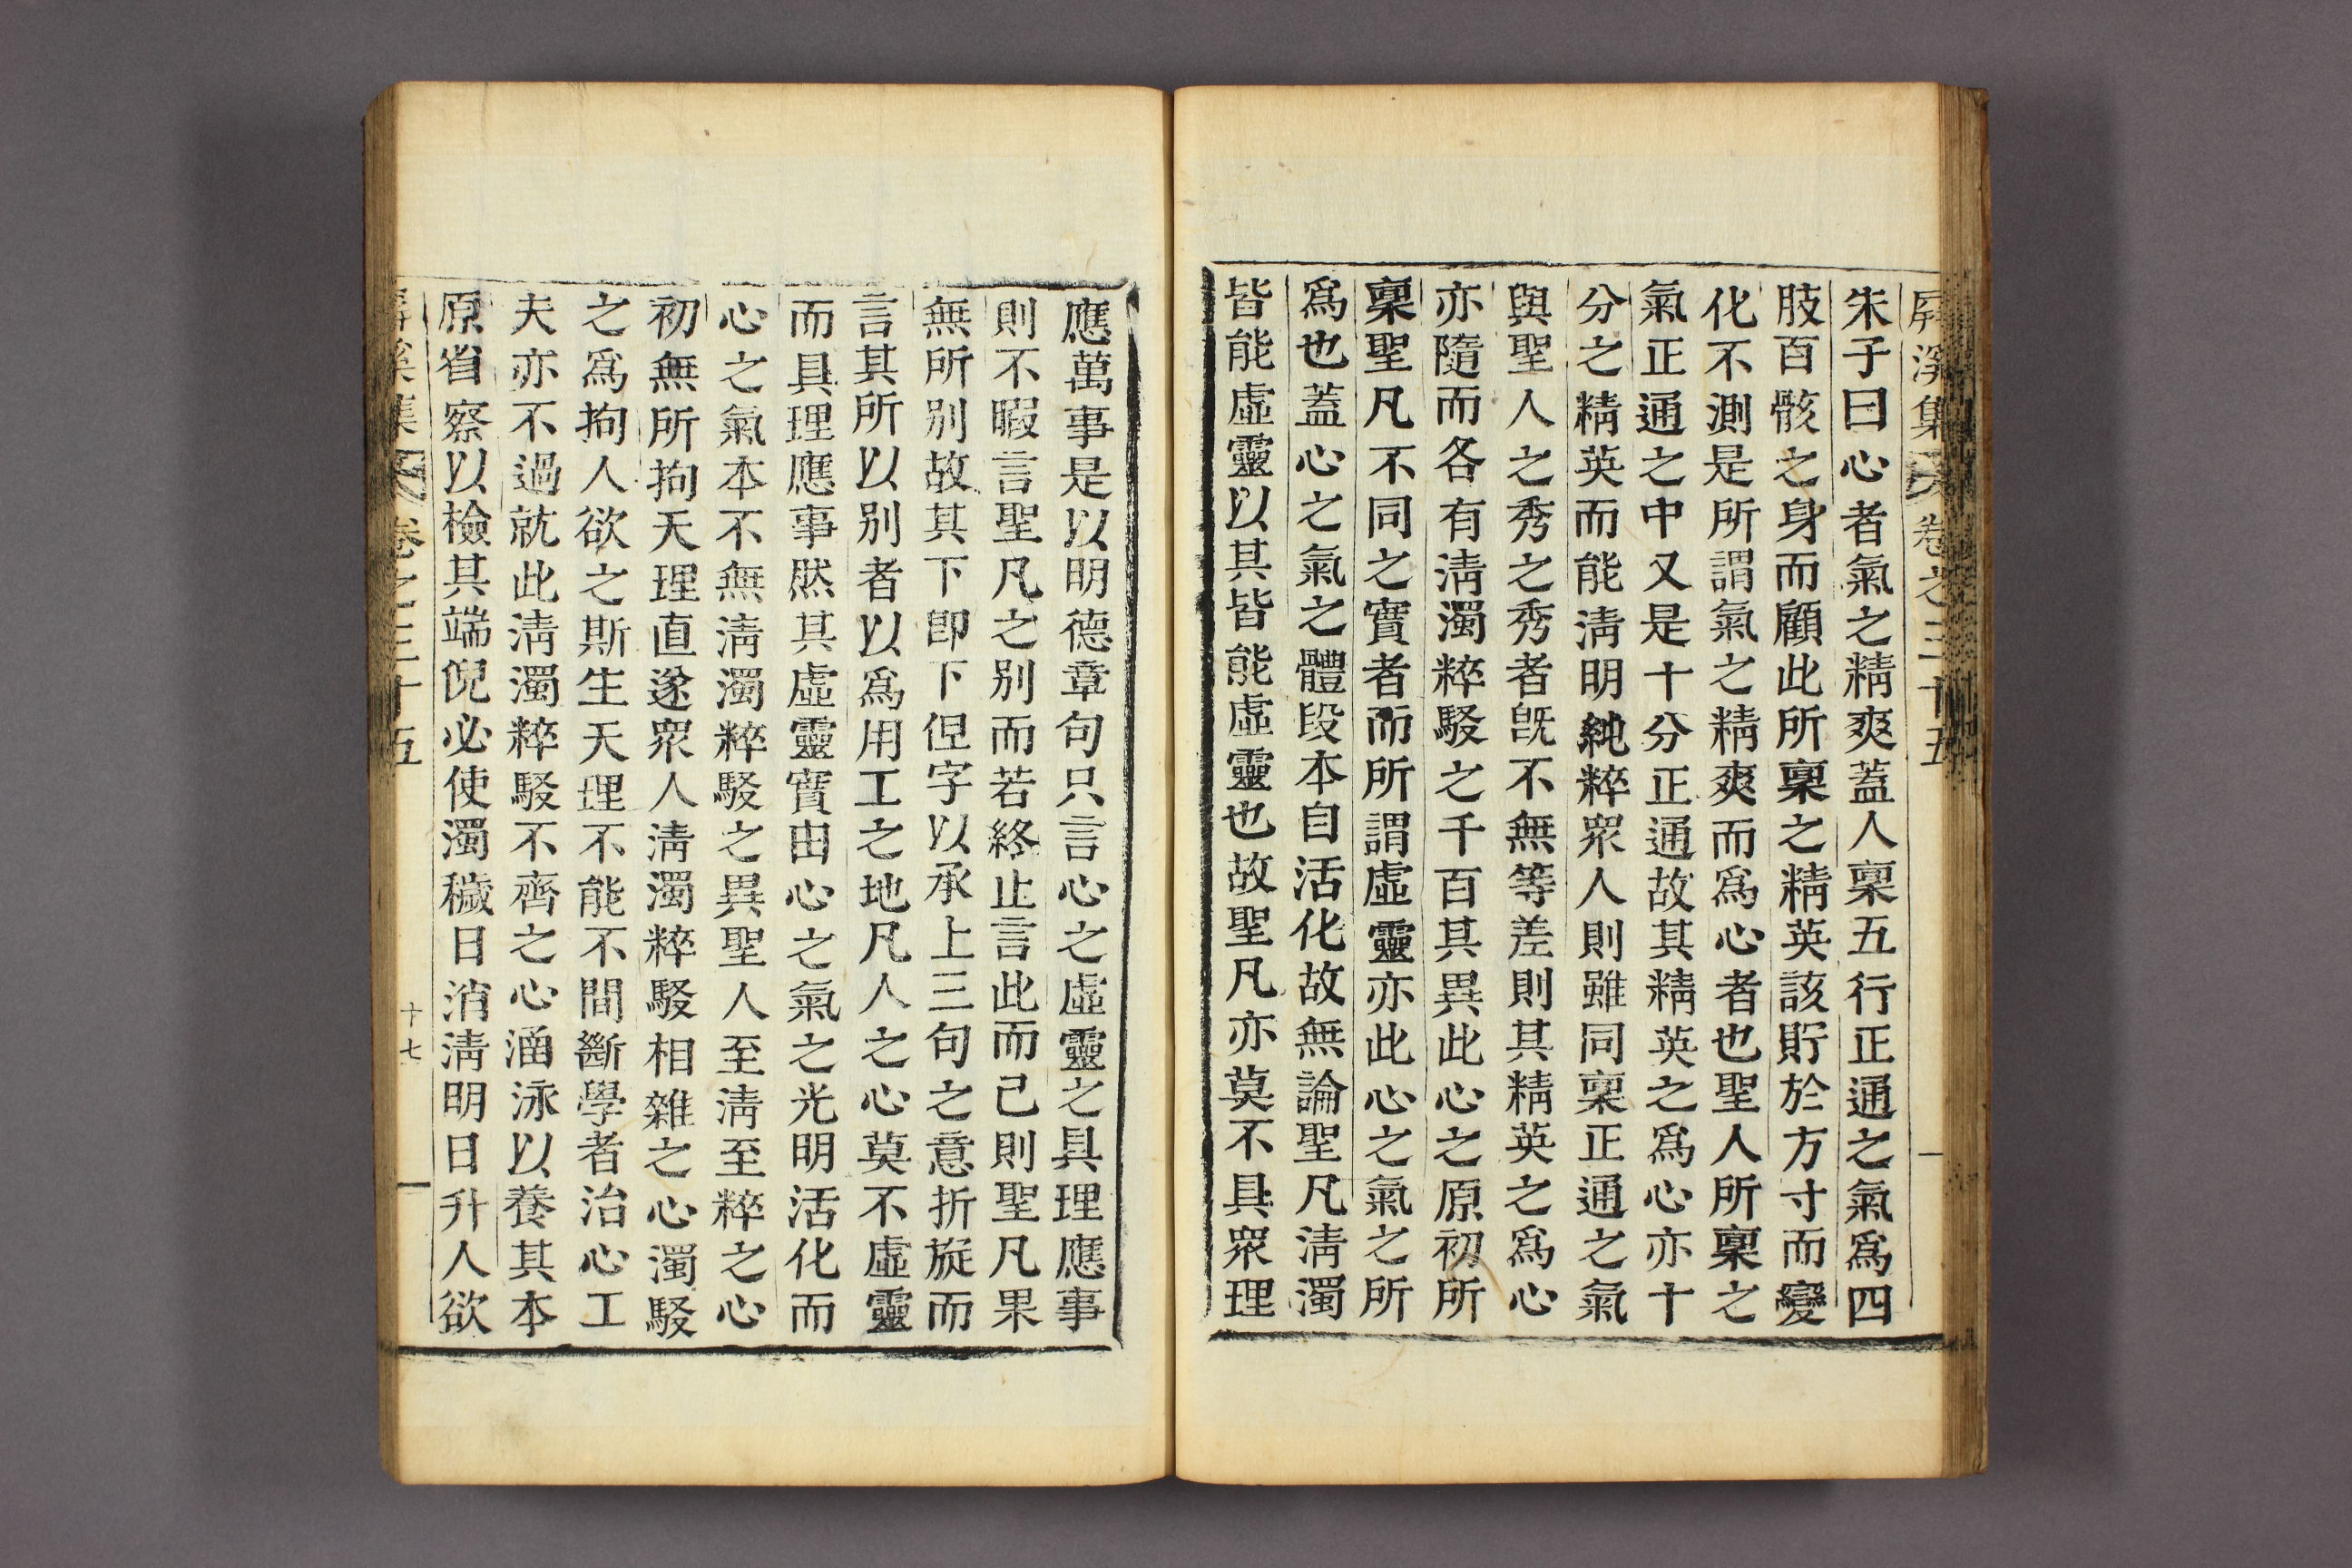 屛溪集 卷之三十五
朱子曰心者氣之精爽蓋人稟五行正通之氣爲四
肢百骸之身而顧此所稟之精英該貯於方寸而變
化不測是所謂氣之精爽而爲心者也聖人所稟之
氣正通之中又是十分正通故其精英之爲心亦十
分之精英而能淸明純粹衆人則雖同稟正通之氣
與聖人之秀之秀者旣不無等差則其精英之爲心
亦隨而各有淸濁粹駁之千百其異此心之原初所
稟聖凡不同之實者而所謂虛靈亦此心之氣之所
爲也蓋心之氣之體段本自活化故無論聖凡淸濁
皆能虛靈以其皆能虛靈也故聖凡亦莫不具衆理
應萬事是以明德章句只言心之虛靈之具理應事
則不暇言聖凡之别而若終止言此而已則聖凡果
無所别故其下卽下但字以承上三句之意折旋而
言其所以别者以爲用工之地凡人之心莫不虛靈
而具理應事然其虛靈實由心之氣之光明活化而
心之氣本不無淸濁粹駁之異聖人至淸至粹之心
初無所拘天理直遂衆人淸濁粹駁相雜之心濁駁
之爲拘人欲之斯生天理不能不間斷學者治心工
夫亦不過就此淸濁粹駁不齊之心涵泳以養其本
原省察以檢其端倪必使濁穢日消淸明日升人欲
屛溪集 卷之三十五 十七